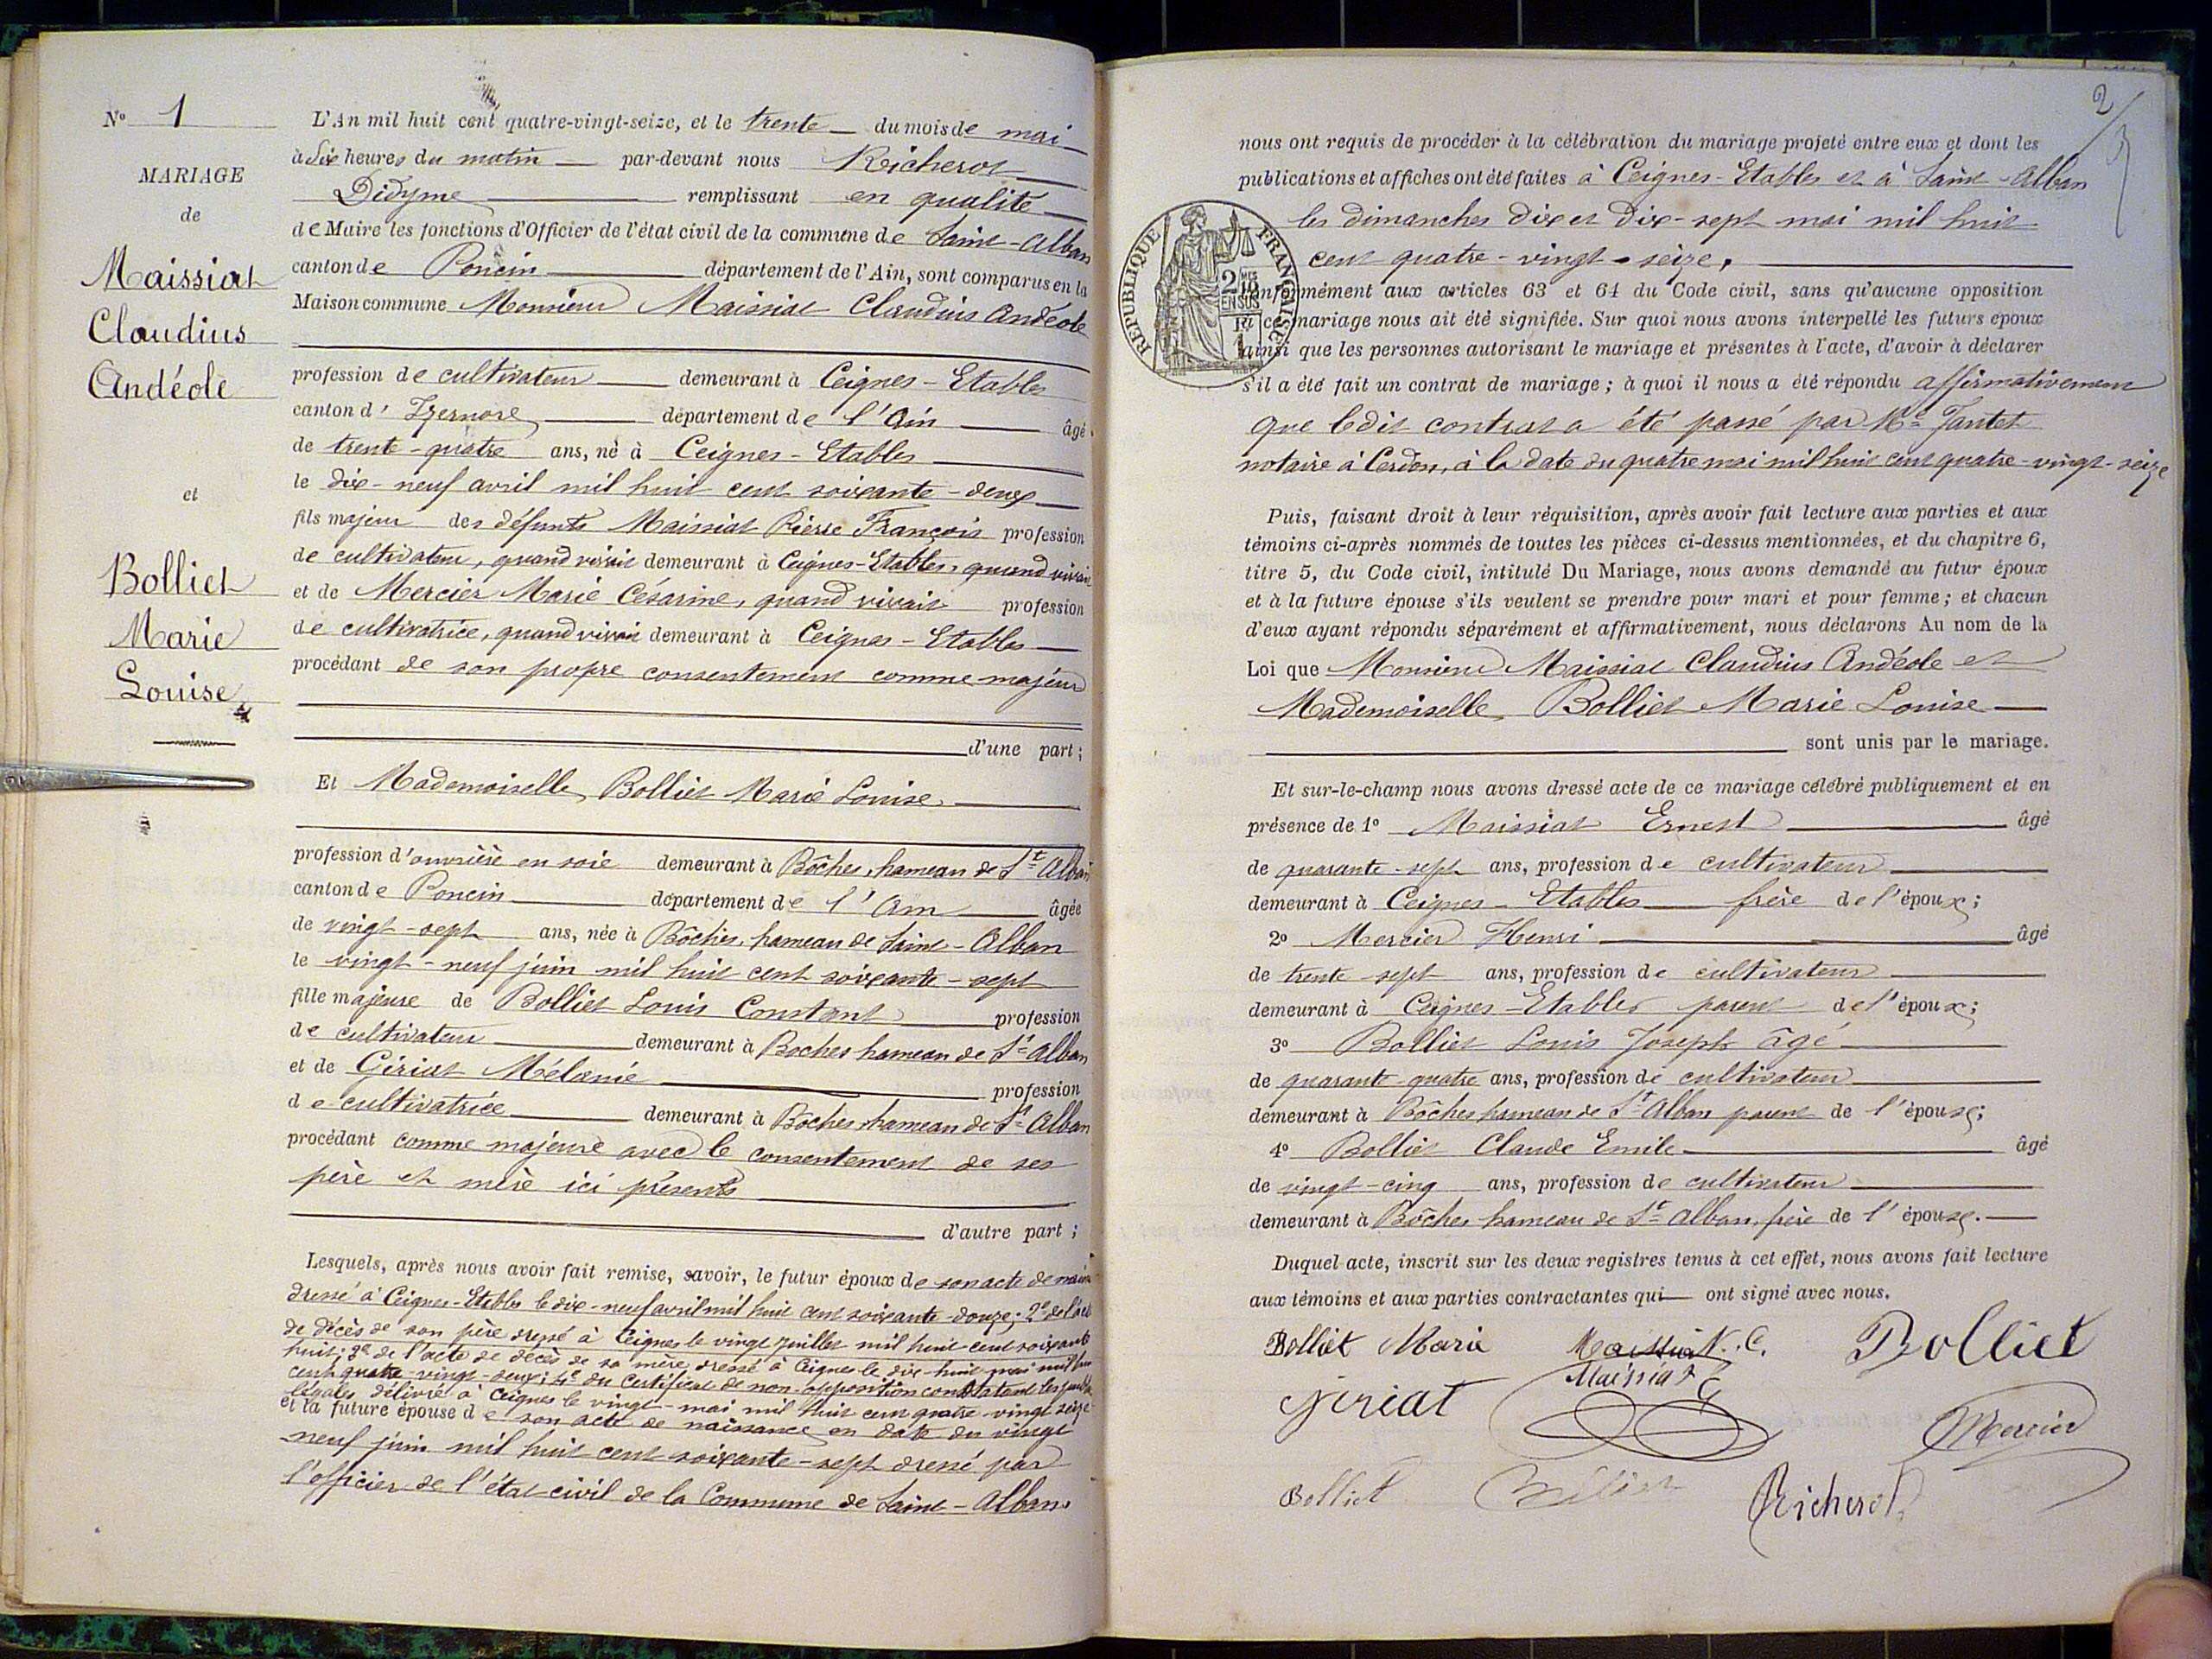 N° 1
MARIAGE
de
Maissiat
Claudius
Andéole
et
Bolliet
Marie
Louise
L'An mil huit cent quatre-vingt-seize, et le trente du mois de mai
à dix heures du matin par-devant nous Richerot
Didyme remplissant en qualité
de Maire les fonctions d'Officier de l'état civil de la commune de Saint-Alban
canton de Poncin département de l'Ain, sont comparus en la
Maison commune Monsieur Maissiat Claudius Andéole
profession de cultivateur demeurant à Ceignes-Etables
canton d'Izernore département de l'Ain âgé
de trente-quatre ans, né à Ceignes-Etables
le dix-neuf avril mil huit cent soixante-deux
fils majeur des défunts Maissiat Pierre François profession
de cultivateur, quand vivait demeurant à Ceignes-Etables, quand vivait
et de Mercier Marie Césarine, quand vivait profession
de cultivatrice, quand vivait demeurant à Ceignes-Etables
procédant de son propre consentement comme majeur
d'une part;
Et Mademoiselle Bolliet Marie Louise
profession d'ouvrière en soie demeurant à Bôches, hameau de St Alban
canton de Poncin département de l'Ain âgée
de vingt-sept ans, née à Bôches, hameau de Saint-Alban
le vingt-neuf juin mil huit cent soixante-sept
fille majeure de Bolliet Louis Constant profession
de cultivateur demeurant à Boches hameau de St Alban
et de Gériat Mélanie profession
de cultivatrice demeurant à Boches, hameau de St Alban
procédant comme majeure avec le consentement de ses
père et mère ici présents
d'autre part;
Lesquels, après nous avoir fait remise, savoir, le futur époux de son acte de naiss
dressé à Ceignes-Etables le dix-neuf avril mil huit cent soixante-douze; 2° de l'acte
de décès de son père dressé à Ceignes le vingt juillet mil huit cent soixante
huit; 3° de l'acte de décès de sa mère dressé à Ceignes le dix-huit mai mil hui
cent quatre-vingt-deux; 4° du certificat de non-opposition constatant les publi
légales délivré à Ceignes le vingt-mai mil huit cent quatre-vingt seize
et la future épouse de son acte de naissance en date du vingt
neuf juin mil huit cent soixante-sept dressé par
l'officier de l'état-civil de la Commune de Saint-Alban
2
nous ont requis de procéder à la célébration du mariage projeté entre eux et dont les
publications et affiches ont été faites à Ceignes-Etables et à Saint-Alban
les dimanches dix et dix-sept mai mil huit
cent quatre-vingt-seize,
RÉPUBLIQUE FRANÇAISE
2 DES EN SUS
conformément aux articles 63 et 64 du Code civil, sans qu'aucune opposition
à ce mariage nous ait été signifiée. Sur quoi nous avons interpellé les futurs époux
ainsi que les personnes autorisant le mariage et présentes à l'acte, d'avoir à déclarer
s'il a été fait un contrat de mariage; à quoi il nous a été répondu affirmativement
que ledit contrat a été passé par Me Jantet
notaire à Cerdon, à la date du quatre mai mil huit cent quatre-vingt-seize
Puis, faisant droit à leur réquisition, après avoir fait lecture aux parties et aux
témoins ci-après nommés de toutes les pièces ci-dessus mentionnées, et du chapitre 6,
titre 5, du Code civil, intitulé Du Mariage, nous avons demandé au futur époux
et à la future épouse s'ils veulent se prendre pour mari et pour femme; et chacun
d'eux ayant répondu séparément et affirmativement, nous déclarons Au nom de la
Loi que Monsieur Maissiat Claudius Andéole et
Mademoiselle Bolliet Marie Louise
sont unis par le mariage.
Et sur-le-champ nous avons dressé acte de ce mariage célébré publiquement et en
présence de 1° Maissiat Ernest âgé
de quarante-sept ans, profession de cultivateur
demeurant à Ceignes-Etables frère de l'époux;
2° Mercier Henri âgé
de trente-sept ans, profession de cultivateur
demeurant à Ceignes-Etables parent de l'époux;
3° Bolliet Louis Joseph âgé
de quarante-quatre ans, profession de cultivateur
demeurant à Bôches hameau de St Alban parent de l'épouse;
4° Bolliet Claude Emile âgé
de vingt-cinq ans, profession de cultivateur
demeurant à Bôches hameau de St Alban, frère de l'épouse.
Duquel acte, inscrit sur les deux registres tenus à cet effet, nous avons fait lecture
aux témoins et aux parties contractantes qui ont signé avec nous.
Bolliet Marie Maissiat. C. Bolliet
Maissiat
Jeriat
Mercier
Bolliet Bolliet Richerot